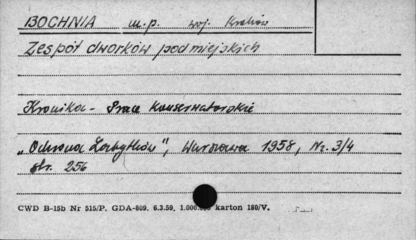 BOCHNIA m.p. woj. Kraków
Zespół dworków podmiejskich
Kronika - Prace konserwatorskie
„Ochrona Zabytków", Warszawa 1958, Nr. 3/4
str. 256
CWD B-15b Nr 515/P. GDA-809. 6.3.59. 1.000.000 karton 180/V.